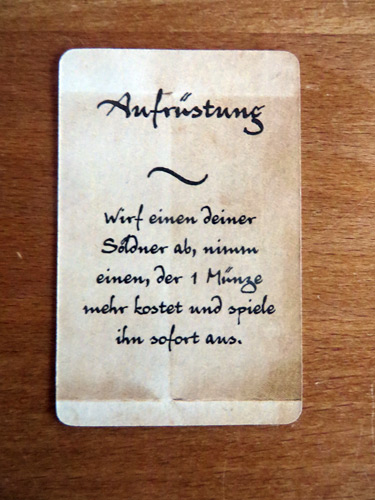 Aufrüstung
Wirf einen deiner
Söldner ab, nimm
einen, der 1 Münze
mehr kostet und spiele
ihn sofort aus.